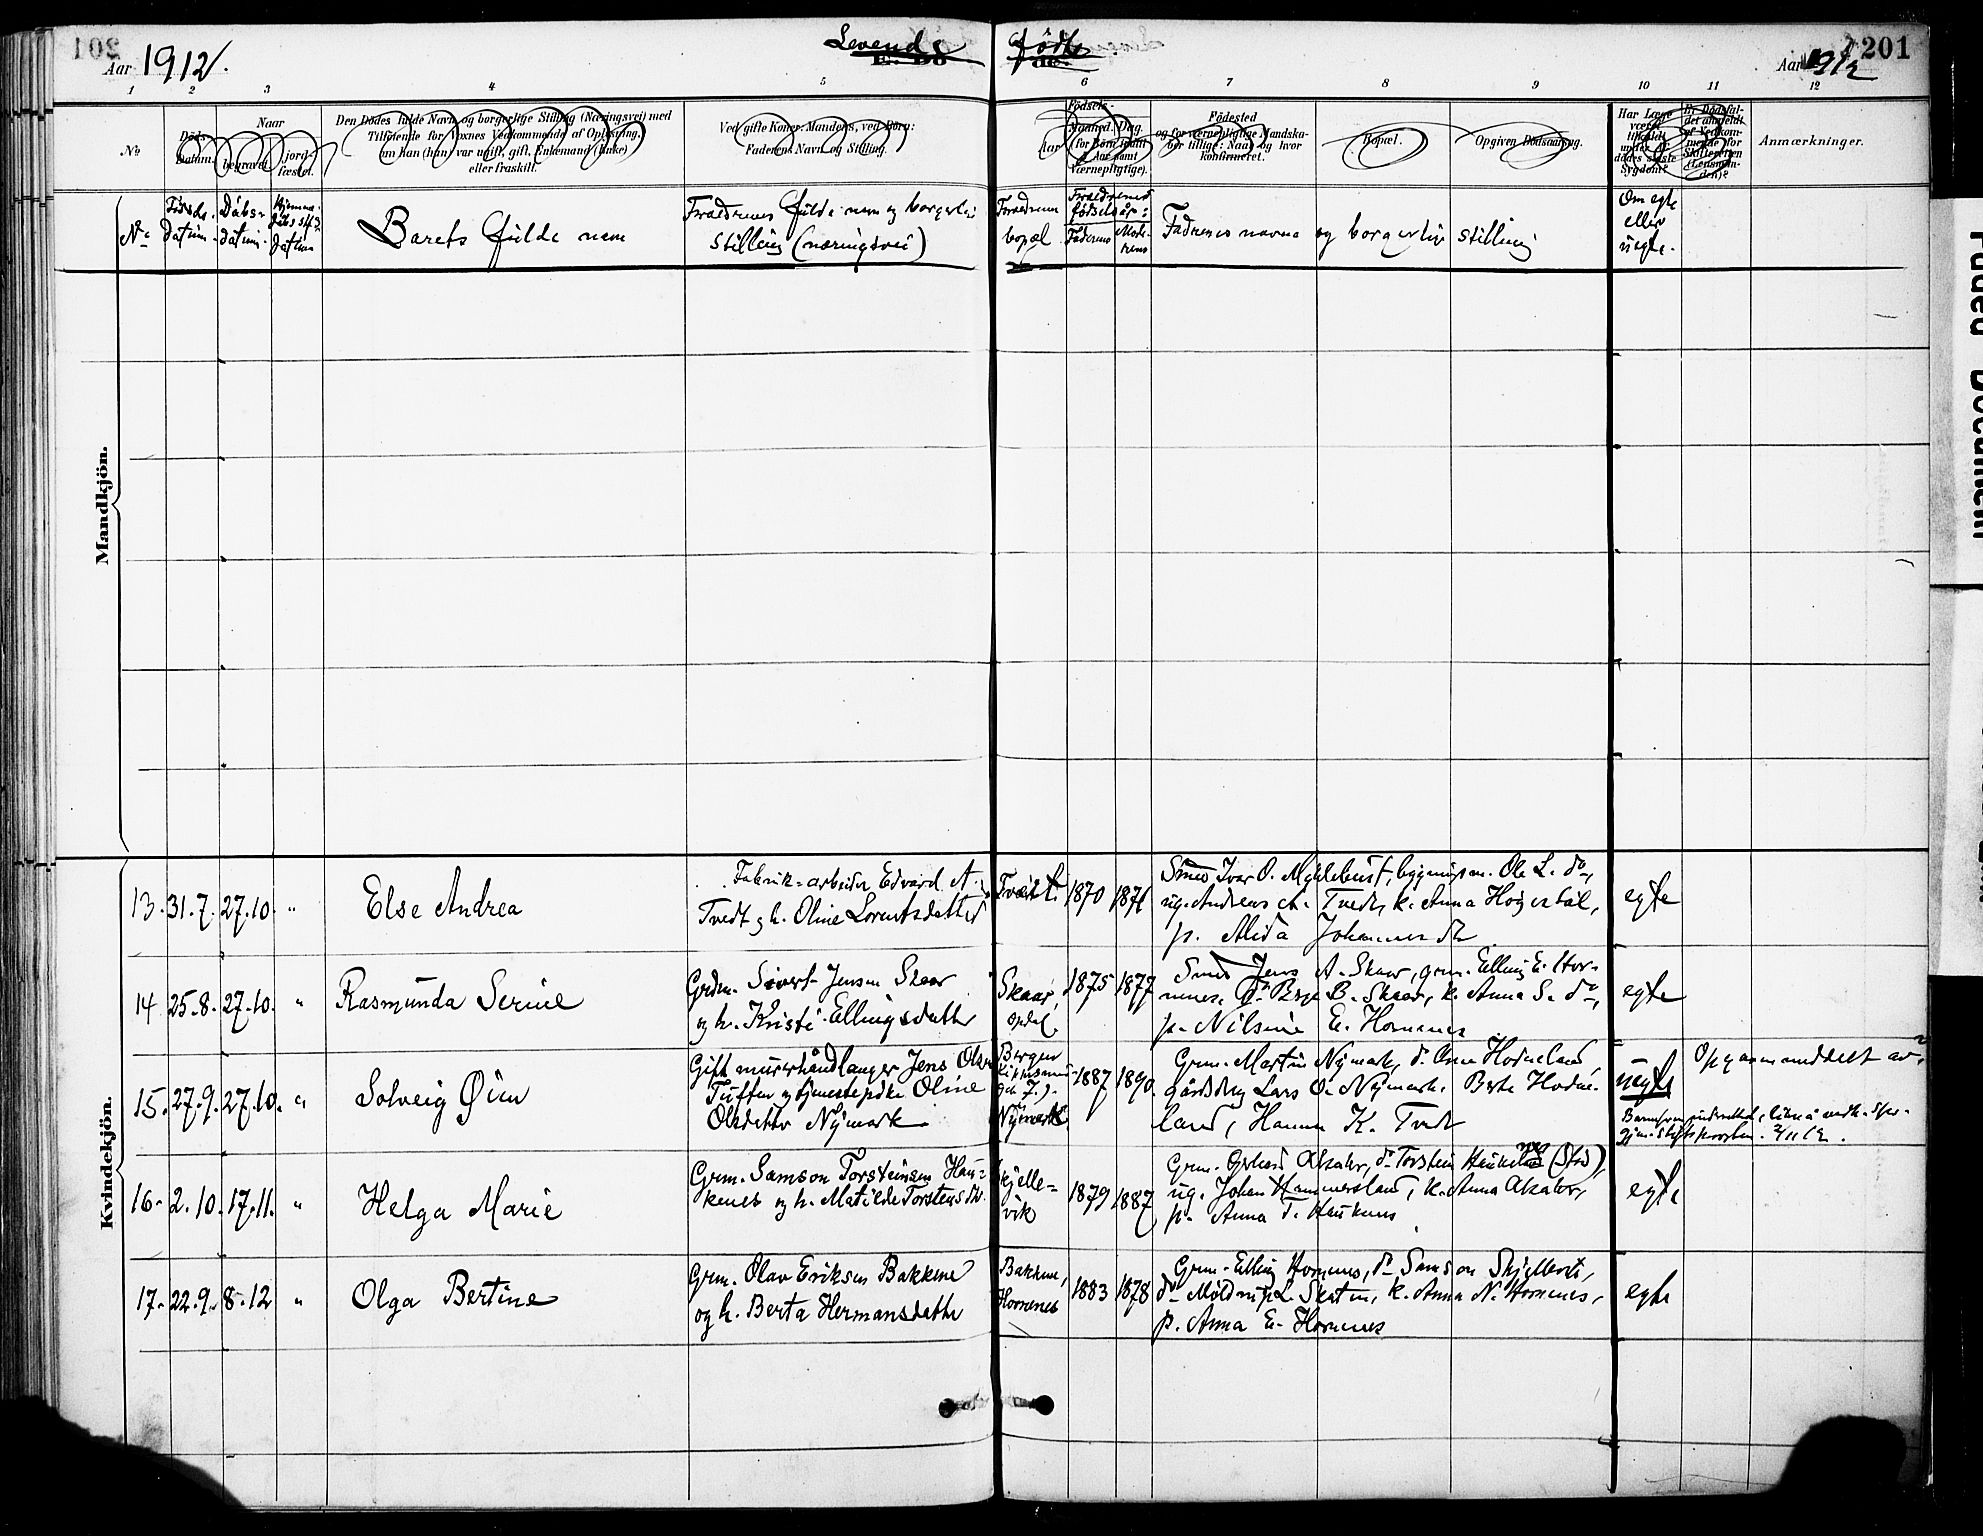 Aar 1912.
Levende
fødte
Aar 1912
201
1 2 3 4 5 6 7 8 9 10 11 12
No
Døds-
Datum.
Naar
begravet.
jord-
fæstet.
Den Dødes fulde Navn og borgerlige Stilling (Næringsvei) med
Tilføiende for Voxnes Vedkommende af Oplysning,
om han (hun) var ugift, gift, Enkemand (Enke)
eller fraskilt.
Ved gifte Koner: Mandens, ved Børn:
Faderens Navn og Stilling.
Fødsels-
Aar
Maaned. Dag.
(for Børn indtil
2 Aar samt
Værnepligtige).
Fødested
og for værnepligtige Mandska-
ber tillige: Naar og hvor
konfirmeret.
Bopæl.
Opgiven Dødsaarsag.
Har Læge
været
tilkaldt
under den
dødes sidste
Sygdom?
Er Dødsfal-
det anmeldt
af Vedkom-
mende for
Skifteretten
(Lensman-
den)?
Anmærkninger.
No
Fødsels-
datum.
Dåbs-
datum.
Hjemme-
dåbs
datum
Barets fulde navn
Forældrenes fulde navn og borgerlig
stilling (næringsvei)
Forældrenes
bopæl
Forældrenes
fødselsår:
Faderens Mode-
rens
Fadrenes navne og borgerlige stilling
Om egte
eller
uegte.
Mandkjön.
Kvindekjön.
13. 31.7. 27.10. "
Else Andrea
Fabrik-arbeider Edvard A.
Tvedt og h. Oline Lorentsdatter
Tvedt. 1870 1871
Smed Ivar O. Myklebust, bygningsm. Ole L. do,
ug. Andreas A. Tvedt, k. Anna
p. Alida Johannesdtr
egte
14 25.8. 27.10. "
Rasmunda Serine
Grdm. Sivert Jensen Skaar
og h. Kristi Ellingsdatter
Skaar, 1875 1877
Smed Jens A. Skaar, grm. Elling E. Hor-
nenes, do B. Skaar, k. Anna S. do,
p. Nilsine E. Hornenes
egte
15. 27.9. 27.10. "
Solveig Øien
Gift murerhåndlanger Jens Olsen
Tuften og tjenestepike Oline
Olsdatter Nymark
Bergen
Nymark 1887 1890.
Grm. Martin Nymark, do Hodneland,
gårddrg Lars O. Nymark, Berta Hodne-
land, Hanna K. Tvedt
uegte
16. 2.10. 17.11. "
Helga Marie
Grm. Samson Torsteinsen Hau-
kenes og h. Matilde Torstensdtr.
Skjelle-
vik 1879 1887
Grm. Gerhard Askaker, do Torstein Haukenes
ug. Johan Hammersland, k. Anna Askaker,
p. Anna T. Haukenes
egte
17. 22.9. 8.12 "
Olga Bertine
Grm. Olav Eriksen Bakkene
og h. Berta Hermansdatter
Bakkene,
Hornenes 1883 1878
Grm. Elling Hornenes, do Samson Skjellevik,
do L. Skaten, k. Anna N. Hornenes,
p. Anna E. Hornenes
egte